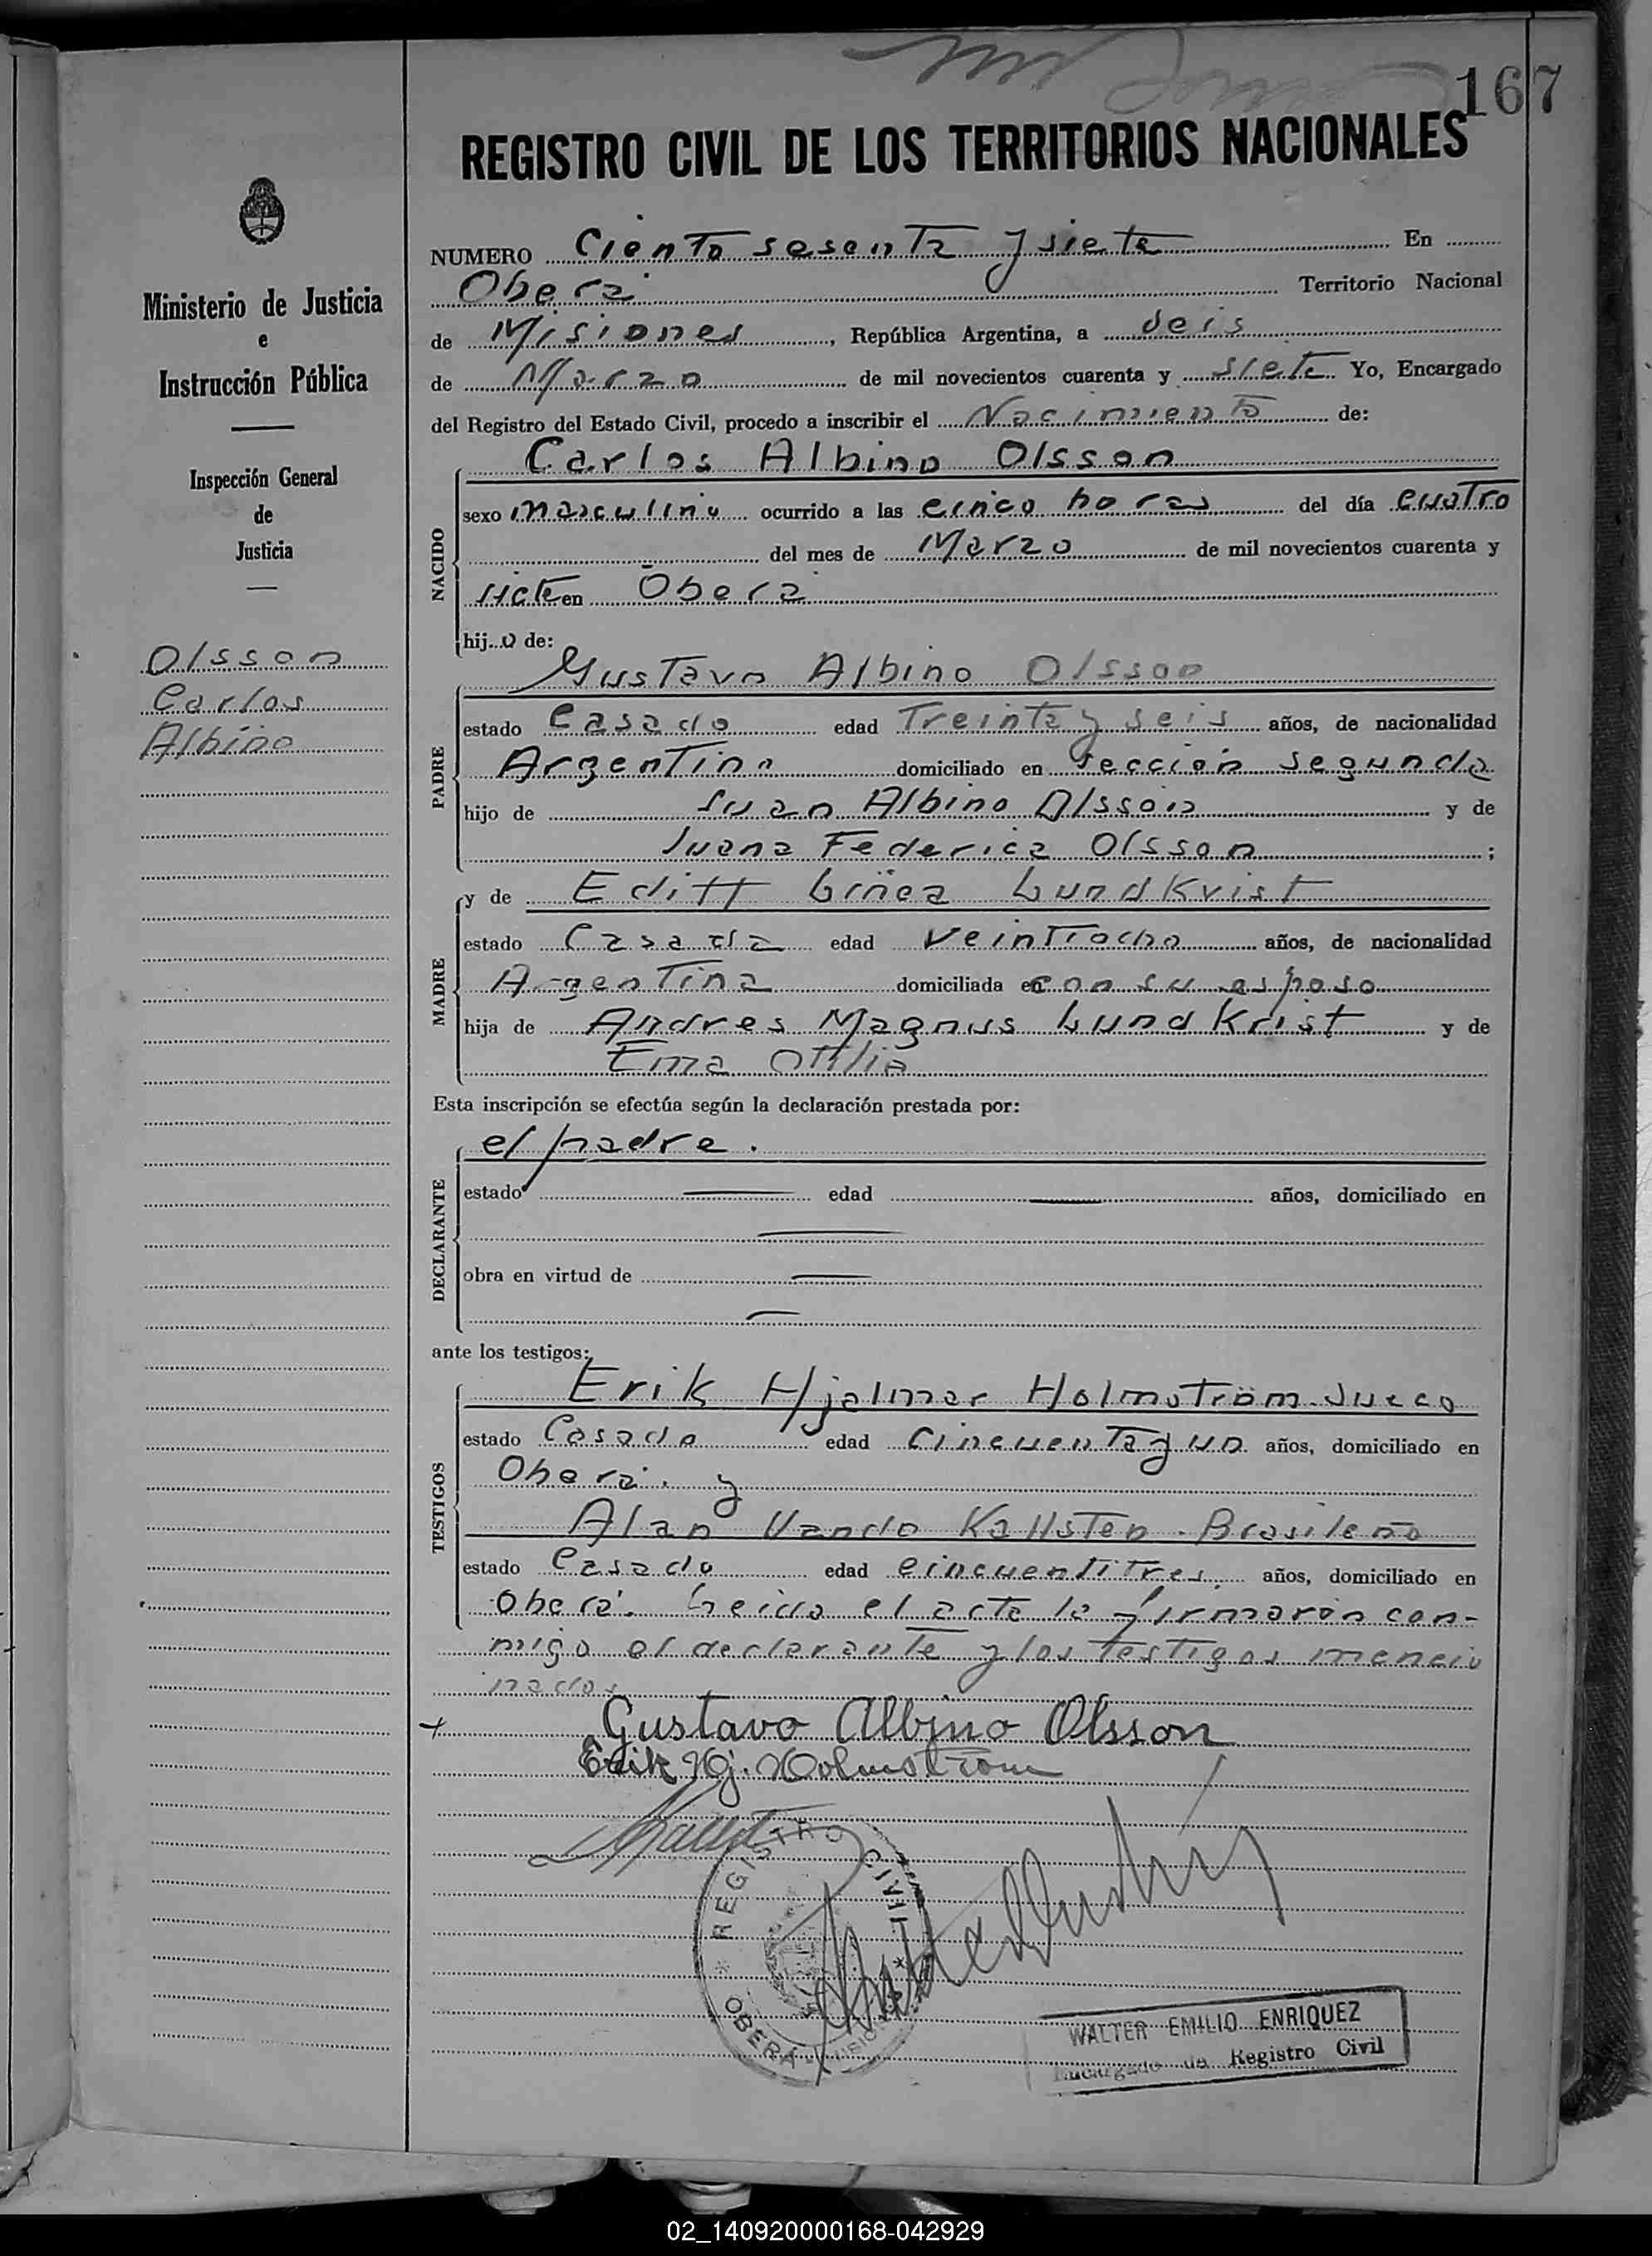 167
REGISTRO CIVIL DE LOS TERRITORIOS NACIONALES
Ministerio de Justicia
e
Instrucción Pública
Inspección General
de
Justicia
Olsson
Carlos
Albino
NUMERO Ciento sesenta y siete En
Oberá Territorio Nacional
de Misiones, República Argentina, a seis
de Marzo de mil novecientos cuarenta y siete Yo, Encargado
del Registro del Estado Civil, procedo a inscribir el Nacimiento de:
Carlos Albino Olsson
NACIDO
sexo masculino ocurrido a las cinco horas del día cuatro
del mes de Marzo de mil novecientos cuarenta y
siete en Oberá
hijo de:
Gustavo Albino Olsson
PADRE
estado Casado edad Treinta y seis años, de nacionalidad
Argentino domiciliado en sección segunda
hijo de Juan Albino Olsson y de
Juana Federica Olsson;
y de Editt Linea LundKvist
MADRE
estado Casada edad veintiocho años, de nacionalidad
Argentina domiciliada en con su esposo
hija de Andres Magnus Lund Krist y de
Ema Ottilia
Esta inscripción se efectúa según la declaración prestada por:
el padre.
DECLARANTE
estado edad años, domiciliado en
obra en virtud de
ante los testigos:
Erik Hjalmar Holmström. Sueco
TESTIGOS
estado Casado edad Cincuenta y un años, domiciliado en
Oberá. y
Alan Vando Kallsten. Brasileño
estado Casado edad cincuentitres. años, domiciliado en
Oberá. Leida el acta la firmaron con-
migo el declarante y los testigos mencio
nados
Gustavo Albino Olsson
Erik Hj. Holmström
REGISTRO CIVIL
OBERÁ
WALTER EMILIO ENRIQUEZ
Encargado de Registro Civil
02_140920000168-042929